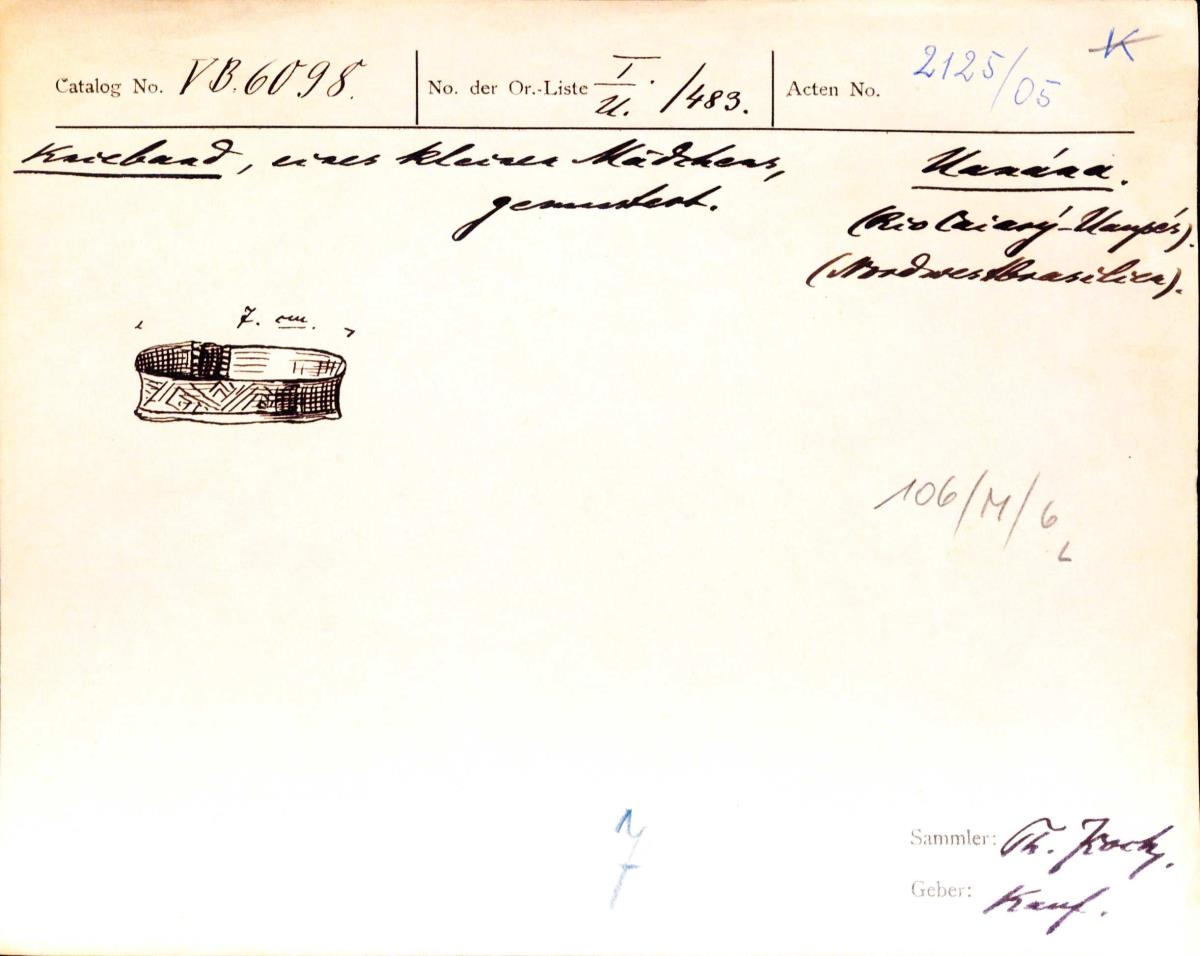 Catalog No. VB. 6098. No. der Or.-Liste I./U. /483. Acten No. 2125/05 K
Knieband, eines kleinen Mädchens,
gemustert.
Uanána.
(Rio Caiarý-Uaupés).
(Nordwestbrasilien).
7. cm.
106/M/6
Sammler: Th. Koch.
Geber: Kauf.